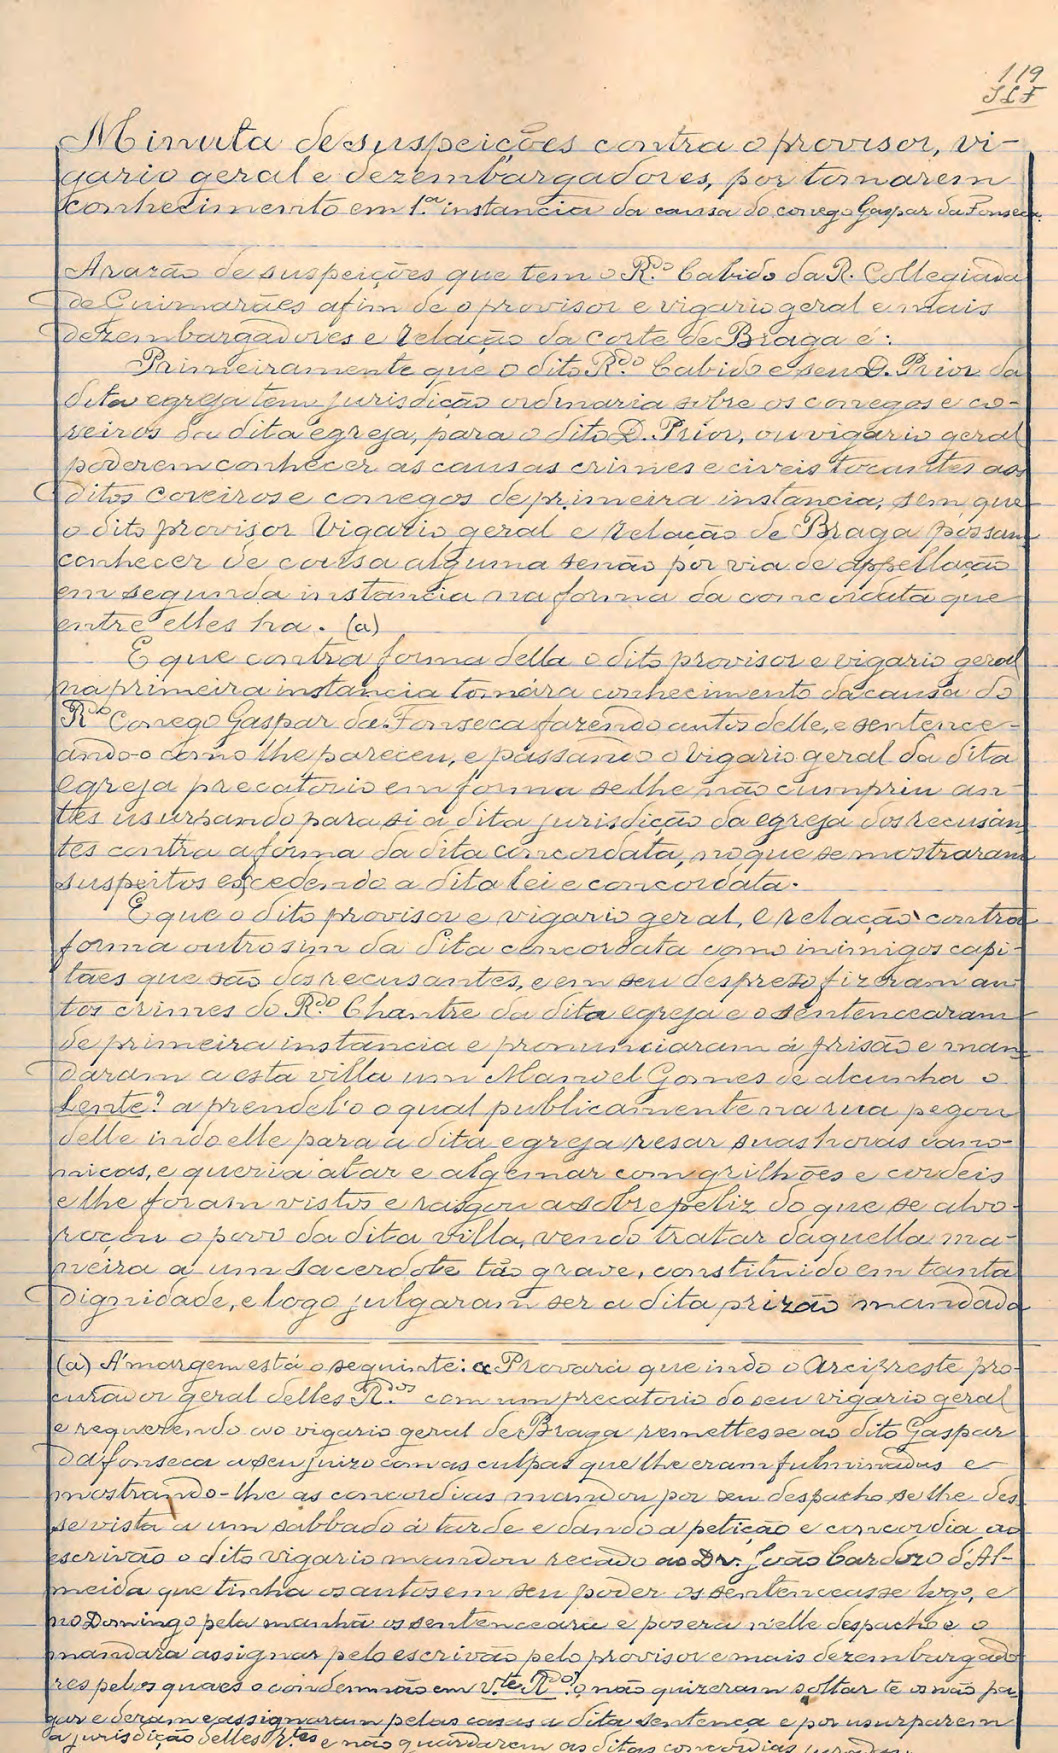 119
JLF
Minuta de suspeições contra o provisor, vi-
gario geral e dezembargadores, por tomarem
conhecimento em 1.ª instancia da causa do conego Gaspar da Fonseca.
A razão de suspeições que tem o R.do Cabido da R. Collegiada
de Guimarães afim de o provisor e vigario geral e mais
dezembargadores e relação da corte de Braga é:
Primeiramente que o dito R.do Cabido e seu D. Prior da
dita egreja tem jurisdição ordinaria sobre os conegos e co-
reiros da dita egreja, para o dito D. Prior, ou vigario geral
poderem conhecer as causas crimes e civeis tocantes aos
ditos coreiros e conegos de primeira instancia, sem que
o dito provisor Vigario geral e relação de Braga possam
conhecer de cousa alguma senão por via de appellação
em segunda instancia na forma da concordata que
entre elles ha. (a)
E que contra forma della o dito provisor e vigario geral
na primeira instancia tomára conhecimento da causa do
R.do Conego Gaspar da Fonseca fazendo autos delle, e sentence-
ando-o como lhe pareceu, e passando o Vigario geral da dita
egreja precatorio em forma se lhe não cumpriu an-
tes usurpando para si a dita jurisdição da egreja dos recusan-
tes contra a fórma da dita concordata, no que se mostraram
suspeitos excedendo a dita lei e concordata.
E que o dito provisor e vigario geral, e relação contra
forma outrosim da dita concordata como inimigos capi-
tães que são dos recusantes, e em seu desprezo fizeram au-
tos crimes do R.do Chantre da dita egreja e o sentencearam
de primeira instancia e pronunciaram á prisão e man-
daram a esta villa um Manoel Gomes de alcunha o
Lente? a prendel-o o qual publicamente na rua pegou
delle indo elle para a dita egreja resar suas horas cano-
nicas, e queria atar e algemar com grilhões e cordeis
e lhe foram vistos e rasgou a sobrepeliz do que se alvo-
roçou o povo da dita villa, vendo tratar daquella ma-
neira a um sacerdote tão grave, constituido em tanta
dignidade, e logo julgaram ser a dita prizão mandada
(a) Á margem está o seguinte: a Provará que indo o Arcipreste pro-
curador geral delles R.dos com um precatorio do seu vigario geral
e requerendo ao vigario geral de Braga remettesse ao dito Gaspar
da fonseca a seu juizo com as culpas que lhe eram fulminadas e
mostrando-lhe as concordias mandou por seu despacho se lhe des-
se vista a um sabbado á tarde e dando a petição e concordia ao
escrivão o dito vigario mandou recado ao Dr. João Cardozo d'Al-
meida que tinha os autos em seu poder os sentenceasse logo, e
no Domingo pela manhã os sentenceára e pozera n'elle despacho e o
mandara assignar pelo escrivão pelo provisor e mais dezembargado-
res pelos quaes o condemnão em v.te R.do? o não quizeram soltar té os não pa-
gar e deram e assignaram pelas casas a dita sentença e por usurparem
a jurisdição delles R.tes e não guardarem as ditas concordias